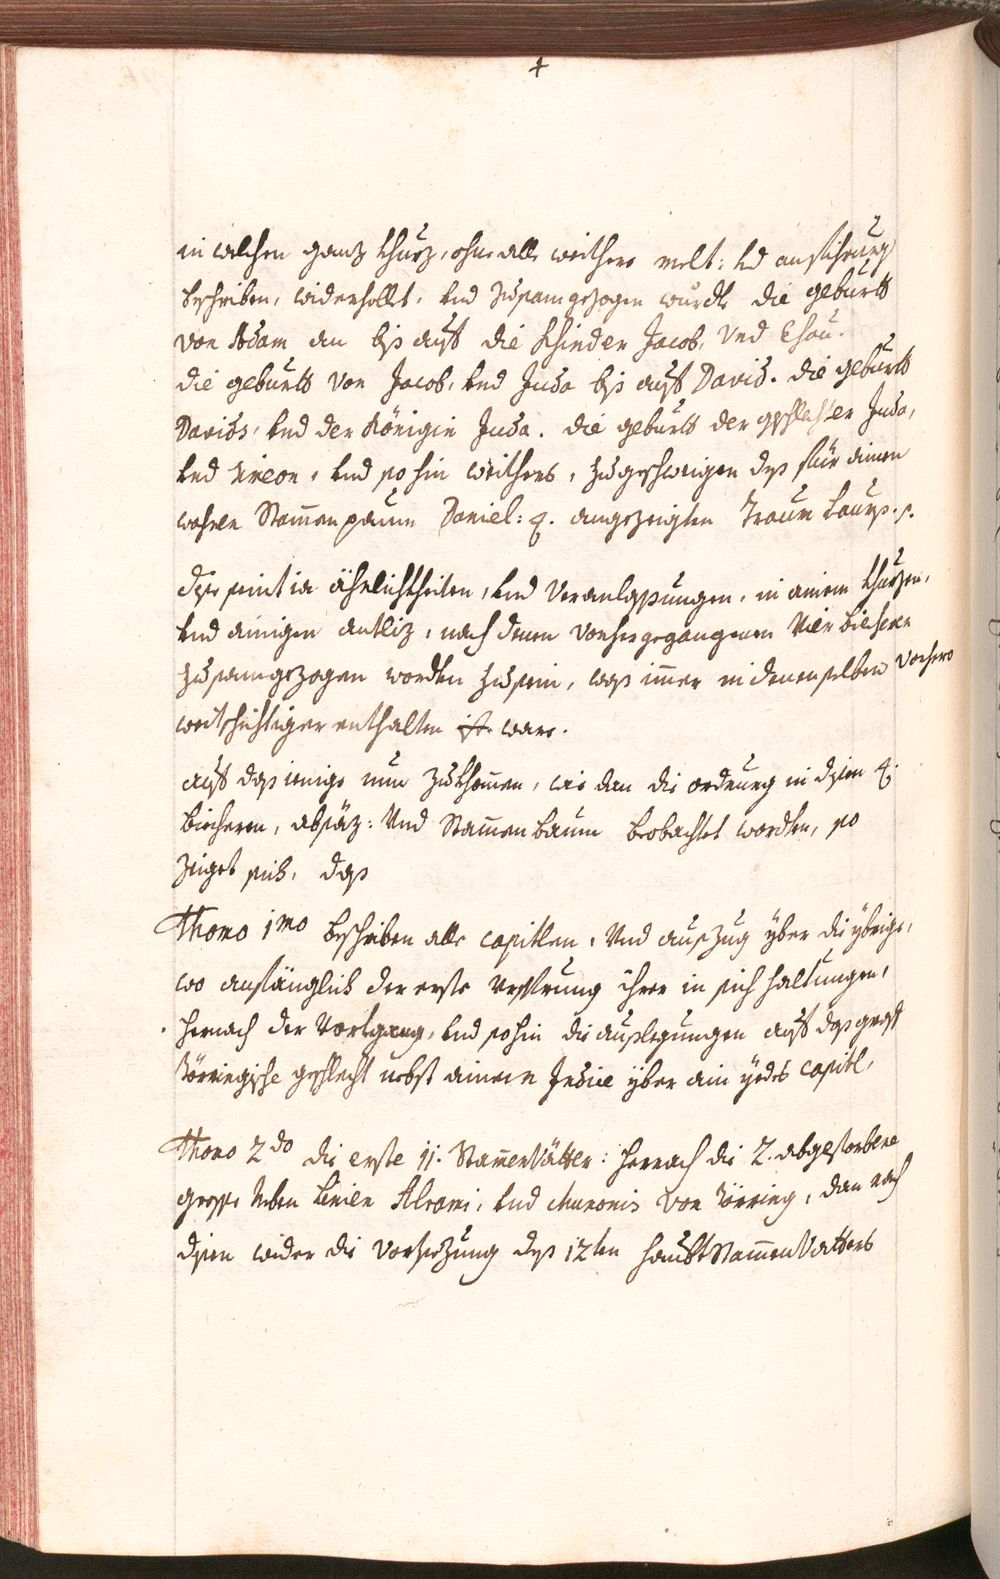 4
in welchen ganz khurz, ohne alle weithere melt: und anfiehrung
beschriben, widerhollet, und zusamgezogen wurdte die geburth
von Adam an biß auf die Khinder Jacob, Und Esau.
die geburth von Jacob, und Juda biß auf David. die geburth
Davids, und der Königin Juda. die geburth der geschlechter Juda,
und Simeon, und so hin weithers, zugeschweigen deß für einen
wahren Stammenpaum Daniel: 4. angezeigten Traum baums.
dise seint ia ähnlichkheiten, und Veranlassungen, in ainem khurzen,
und ainigen antliz, nach denen vorhergegangenen Vier biechern
zusamgezogen wordten zusein, waß immer in denenselben vorhero
weitschichtiger enthalten ware.
auf dasienige nun zukhommen, wie dan die ordnung in disen 4.
biecheren, absäz: Und Stammenbaum beobachtet wordten, so
zeiget sich, daß
Thomo 1mo beschriben alle capitlen, Und auszug yber die ybrige,
wo anfänglich der erste Ursprung ihrer in sich haltungen,
hernach der Vortgang, und sohin die auslegungen auf das graff
Törringische geschlecht nebst ainem Indice yber ain yedes capitl,
Thomo 2do die erste 11. StammenVätter: hernach die 2. abgestorbene
grosse neben Linien Alrami, und von Törring, dan nach
disen wider die Vorsezung deß 12ten haubtStammenVatters